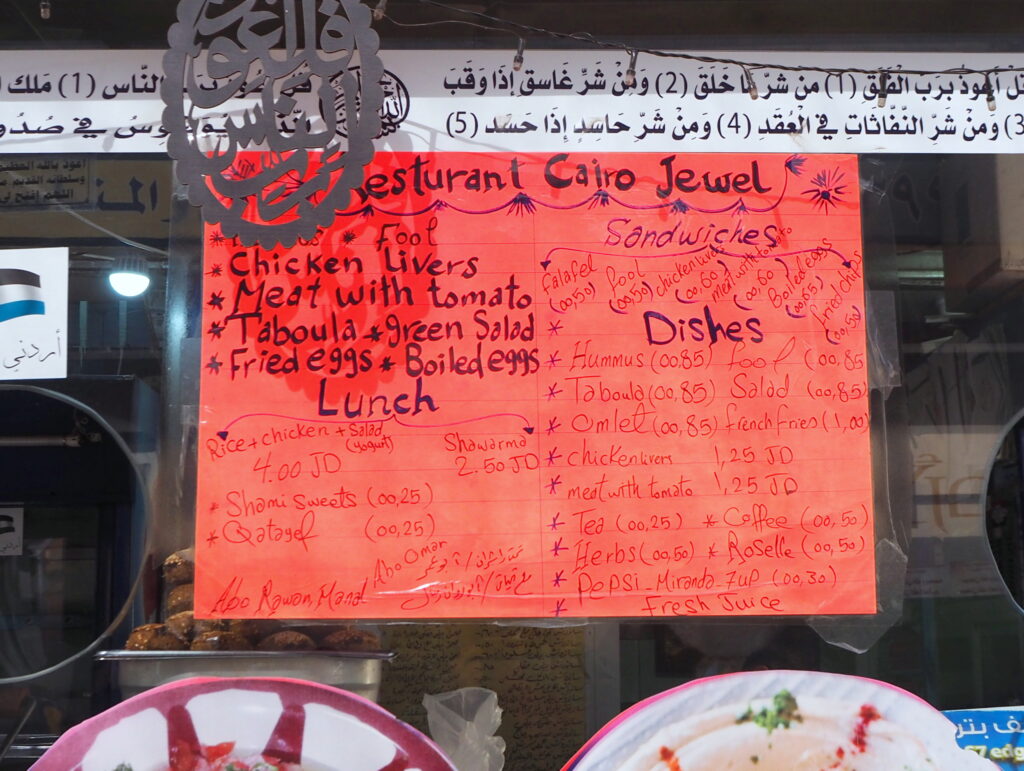 قل أعوذ برب الفلق (1) من شر ما خلق (2) ومن شر غاسق إذا وقب
3) ومن شر النفاثات في العقد (4) ومن شر حاسد إذا حسد (5)
الناس (1) ملك
في صدو
أعوذ بالله العظيم
أردني
esturant Cairo Jewel
* Fool
* Chicken Livers
* Meat with tomato
* Taboula * green Salad
* Fried eggs * Boiled eggs
Lunch
Rice + chicken + Salad (yogurt) 4.00 JD
Shawarma 2.50 JD
* Shami sweets (00,25)
* Qatayef (00,25)
Abo Rawan, Manal
Abo Omar
Sandwiches
Falafel (00,50)
fool (00,50)
chicken livers (00,60)
meat with tomato (00,60)
Boiled eggs (00,65)
fried chips (00,50)
* Dishes
* Hummus (00,85) fool (00,85
* Taboula (00,85) Salad (00,85)
* Omlet (00,85) french fries (1,00)
* chicken livers 1,25 JD
* meat with tomato 1,25 JD
* Tea (00,25) * Coffee (00,50)
* Herbs (00,50) * Roselle (00,50)
* Pepsi - Miranda - 7up (00,30)
* Fresh Juice
S7 edg